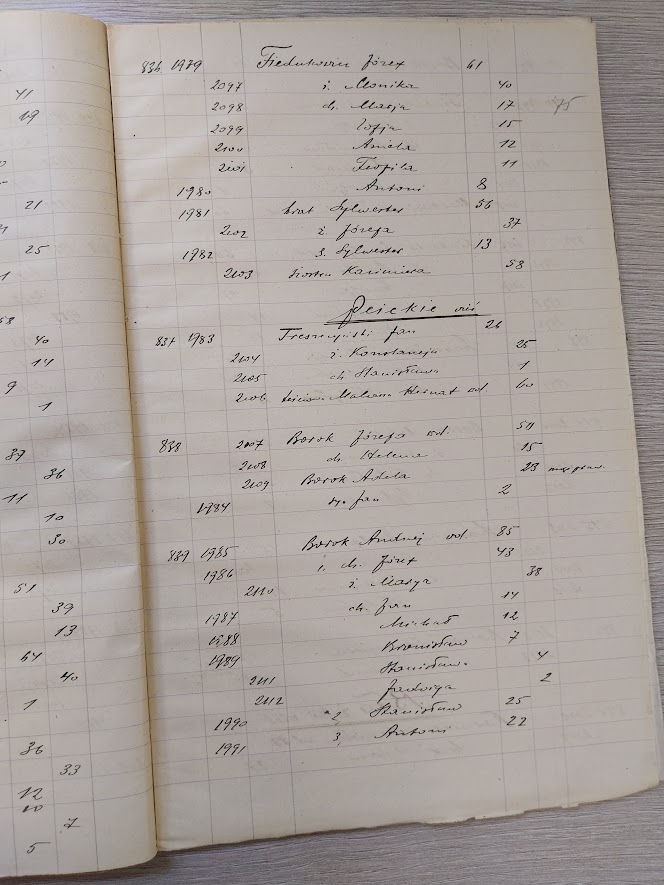 41
19
21
25
1
58
40
14
9
1
37
36
11
10
30
51
39
13
64
40
1
36
33
12
10
7
5
836 1979 Józef 61
2097 ż. Monika 40
2098 ch. Marja 17 75
2099 Zofja 15
2100 Aniela 12
2101 Teofila 11
1980 Antoni 8
1981 brat Sylwester 56
2102 ż Józefa 37
1982 s. Sylwester 13
2103 siostra Kazimiera 58
wieś
837 1983 Jan 26
2104 ż. Konstancja 25
2105 ch Stanisława 1
2106 wd. 60
838 2107 Borok Józefa wd. 50
2108 ch Helena 15
2109 Borok Adela 23
1984 Jan 2
839 1985 Borok Andrzej wd. 85
1986 1, ch. Józef 43
2110 ż. Marya 38
1987 ch. Jan 14
1988 Michał 12
1989 Bronisław 7
2111 Stanisława 4
2112 Jadwiga 2
1990 2 Stanisław 25
1991 3, Antoni 22